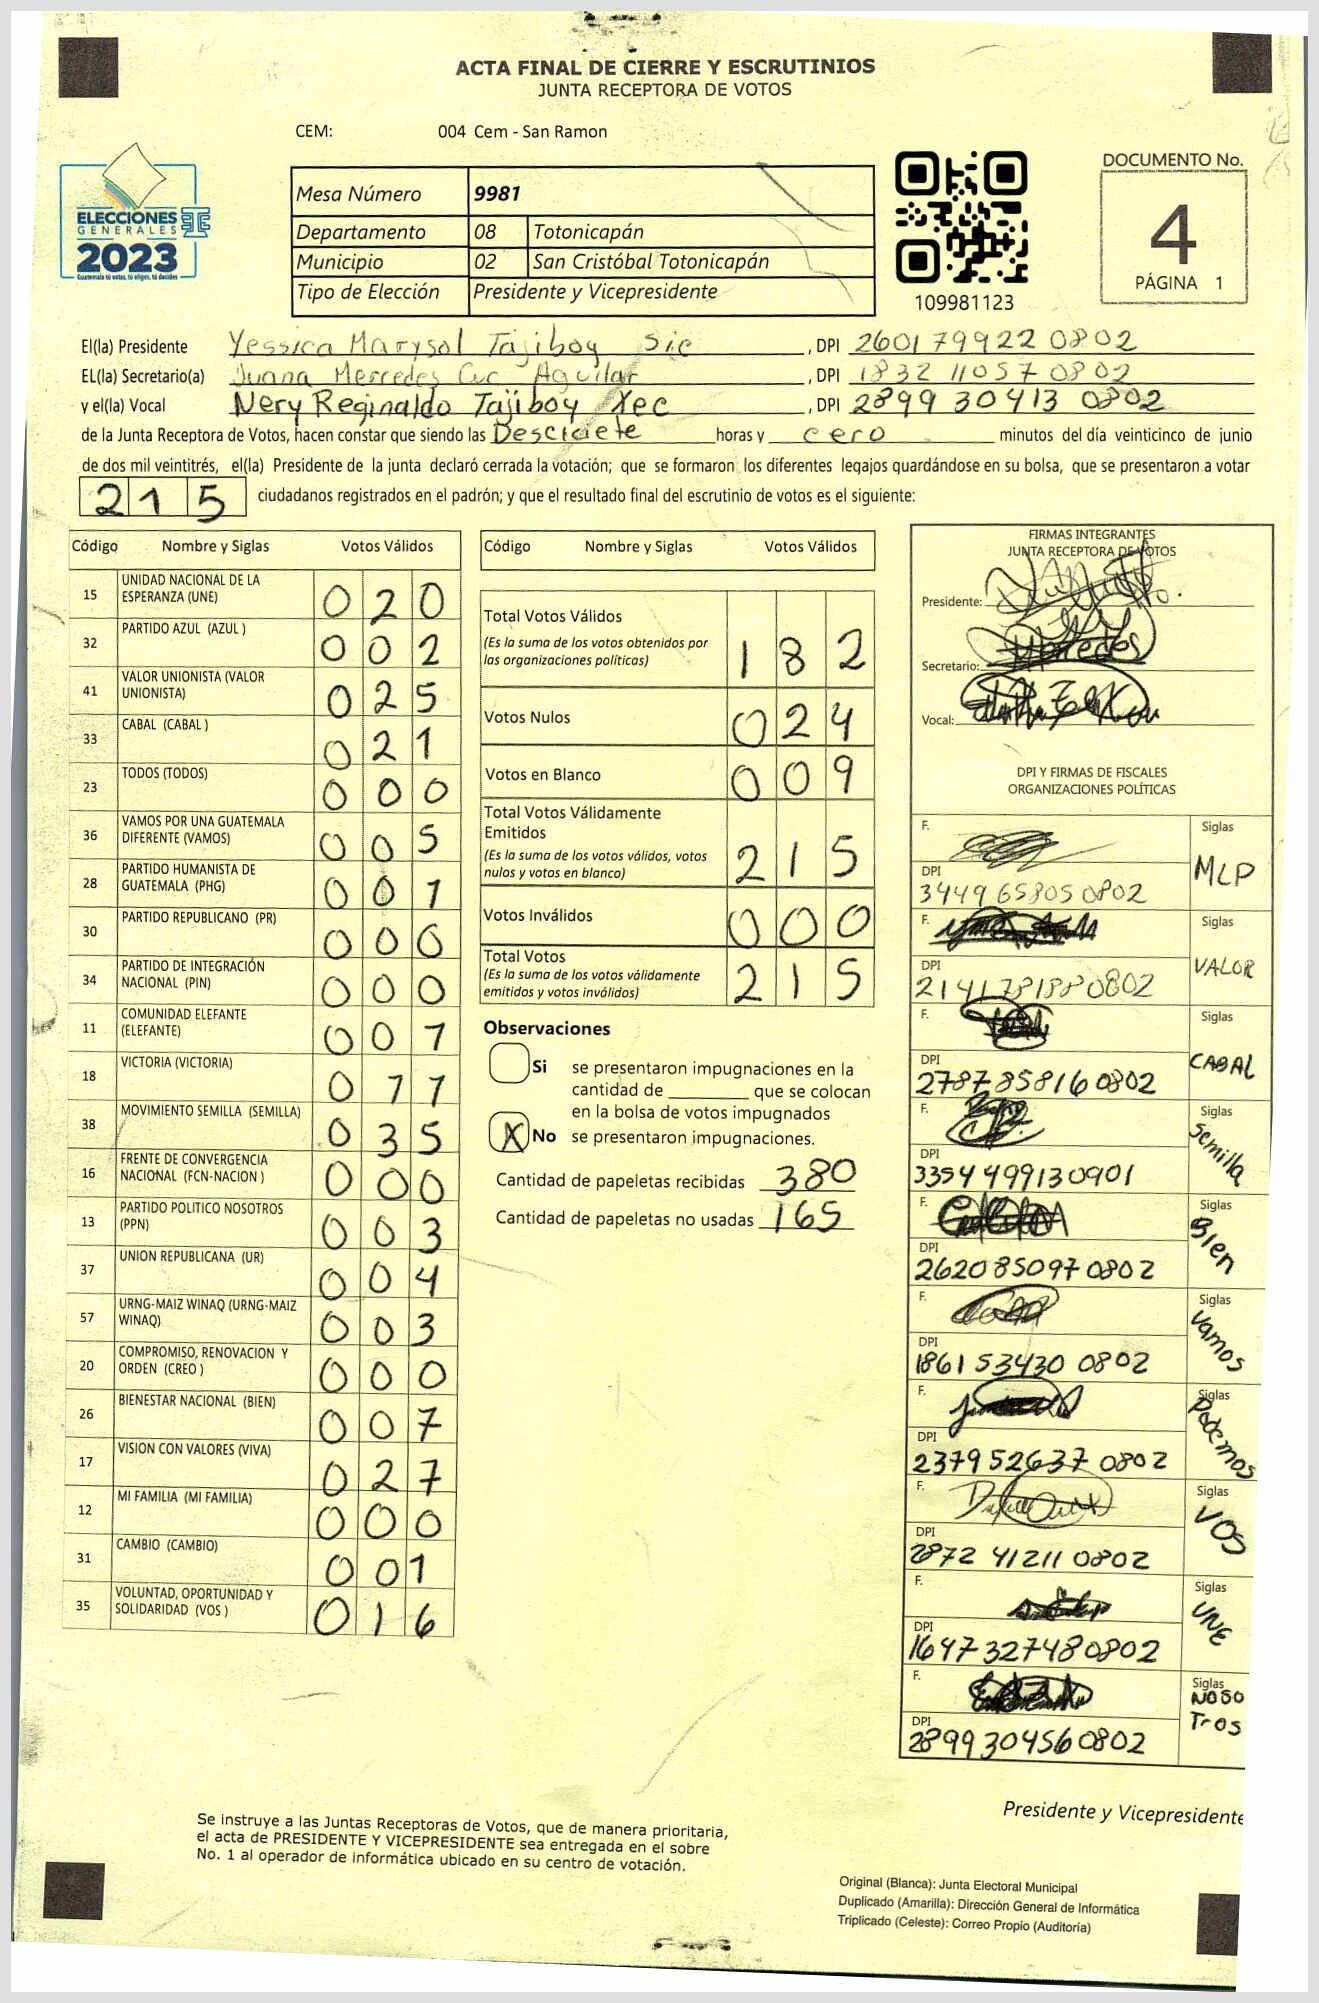 ACTA FINAL DE CIERRE Y ESCRUTINIOS
JUNTA RECEPTORA DE VOTOS
CEM: 004 Cem - San Ramon
ELECCIONES
GENERALES
2023
Guatemala tú votas, tú eliges, tú decides
Mesa Número 9981
Departamento 08 Totonicapán
Municipio 02 San Cristóbal Totonicapán
Tipo de Elección Presidente y Vicepresidente
109981123
DOCUMENTO No.
4
PÁGINA 1
El(la) Presidente Yessica Marysol Tajiboy Sic , DPI 2601 79922 0802
EL(la) Secretario(a) Juana Mercedes Cuc Aguilar , DPI 1832 11057 0802
y el(la) Vocal Nery Reginaldo Tajiboy Xec , DPI 2899 30413 0802
de la Junta Receptora de Votos, hacen constar que siendo las Desciciete horas y cero minutos del día veinticinco de junio
de dos mil veintitrés, el(la) Presidente de la junta declaró cerrada la votación; que se formaron los diferentes legajos guardándose en su bolsa, que se presentaron a votar
215 ciudadanos registrados en el padrón; y que el resultado final del escrutinio de votos es el siguiente:
Código Nombre y Siglas Votos Válidos
15 UNIDAD NACIONAL DE LA ESPERANZA (UNE) 020
32 PARTIDO AZUL (AZUL ) 002
41 VALOR UNIONISTA (VALOR UNIONISTA) 025
33 CABAL (CABAL ) 021
23 TODOS (TODOS) 000
36 VAMOS POR UNA GUATEMALA DIFERENTE (VAMOS) 005
28 PARTIDO HUMANISTA DE GUATEMALA (PHG) 001
30 PARTIDO REPUBLICANO (PR) 000
34 PARTIDO DE INTEGRACIÓN NACIONAL (PIN) 000
11 COMUNIDAD ELEFANTE (ELEFANTE) 007
18 VICTORIA (VICTORIA) 011
38 MOVIMIENTO SEMILLA (SEMILLA) 035
16 FRENTE DE CONVERGENCIA NACIONAL (FCN-NACION ) 000
13 PARTIDO POLITICO NOSOTROS (PPN) 003
37 UNION REPUBLICANA (UR) 004
57 URNG-MAIZ WINAQ (URNG-MAIZ WINAQ) 003
20 COMPROMISO, RENOVACION Y ORDEN (CREO ) 000
26 BIENESTAR NACIONAL (BIEN) 007
17 VISION CON VALORES (VIVA) 027
12 MI FAMILIA (MI FAMILIA) 000
31 CAMBIO (CAMBIO) 001
35 VOLUNTAD, OPORTUNIDAD Y SOLIDARIDAD (VOS ) 016
Código Nombre y Siglas Votos Válidos
Total Votos Válidos 182
(Es la suma de los votos obtenidos por
las organizaciones políticas)
Votos Nulos 024
Votos en Blanco 009
Total Votos Válidamente
Emitidos 215
(Es la suma de los votos válidos, votos
nulos y votos en blanco)
Votos Inválidos 000
Total Votos 215
(Es la suma de los votos válidamente
emitidos y votos inválidos)
Observaciones
Si se presentaron impugnaciones en la
cantidad de ________ que se colocan
en la bolsa de votos impugnados
X No se presentaron impugnaciones.
Cantidad de papeletas recibidas 380
Cantidad de papeletas no usadas 165
FIRMAS INTEGRANTES
JUNTA RECEPTORA DE VOTOS
Presidente:
Secretario:
Vocal:
DPI Y FIRMAS DE FISCALES
ORGANIZACIONES POLÍTICAS
F. Siglas MLP
DPI 3449 65805 0802
F. Siglas VALOR
DPI 2141781880802
F. Siglas CABAL
DPI 2787858160802
F. Siglas Semilla
DPI 3354499130901
F. Siglas Bien
DPI 2620850970802
F. Siglas Vamos
DPI 1861 53430 0802
F. Siglas Podemos
DPI 2379 52637 0802
F. Siglas VOS
DPI 2872 41211 0802
F. Siglas UNE
DPI 1647327480802
F. Siglas NOSO Tros
DPI 2899304560802
Presidente y Vicepresidente
Se instruye a las Juntas Receptoras de Votos, que de manera prioritaria,
el acta de PRESIDENTE Y VICEPRESIDENTE sea entregada en el sobre
No. 1 al operador de informática ubicado en su centro de votación.
Original (Blanca): Junta Electoral Municipal
Duplicado (Amarilla): Dirección General de Informática
Triplicado (Celeste): Correo Propio (Auditoría)